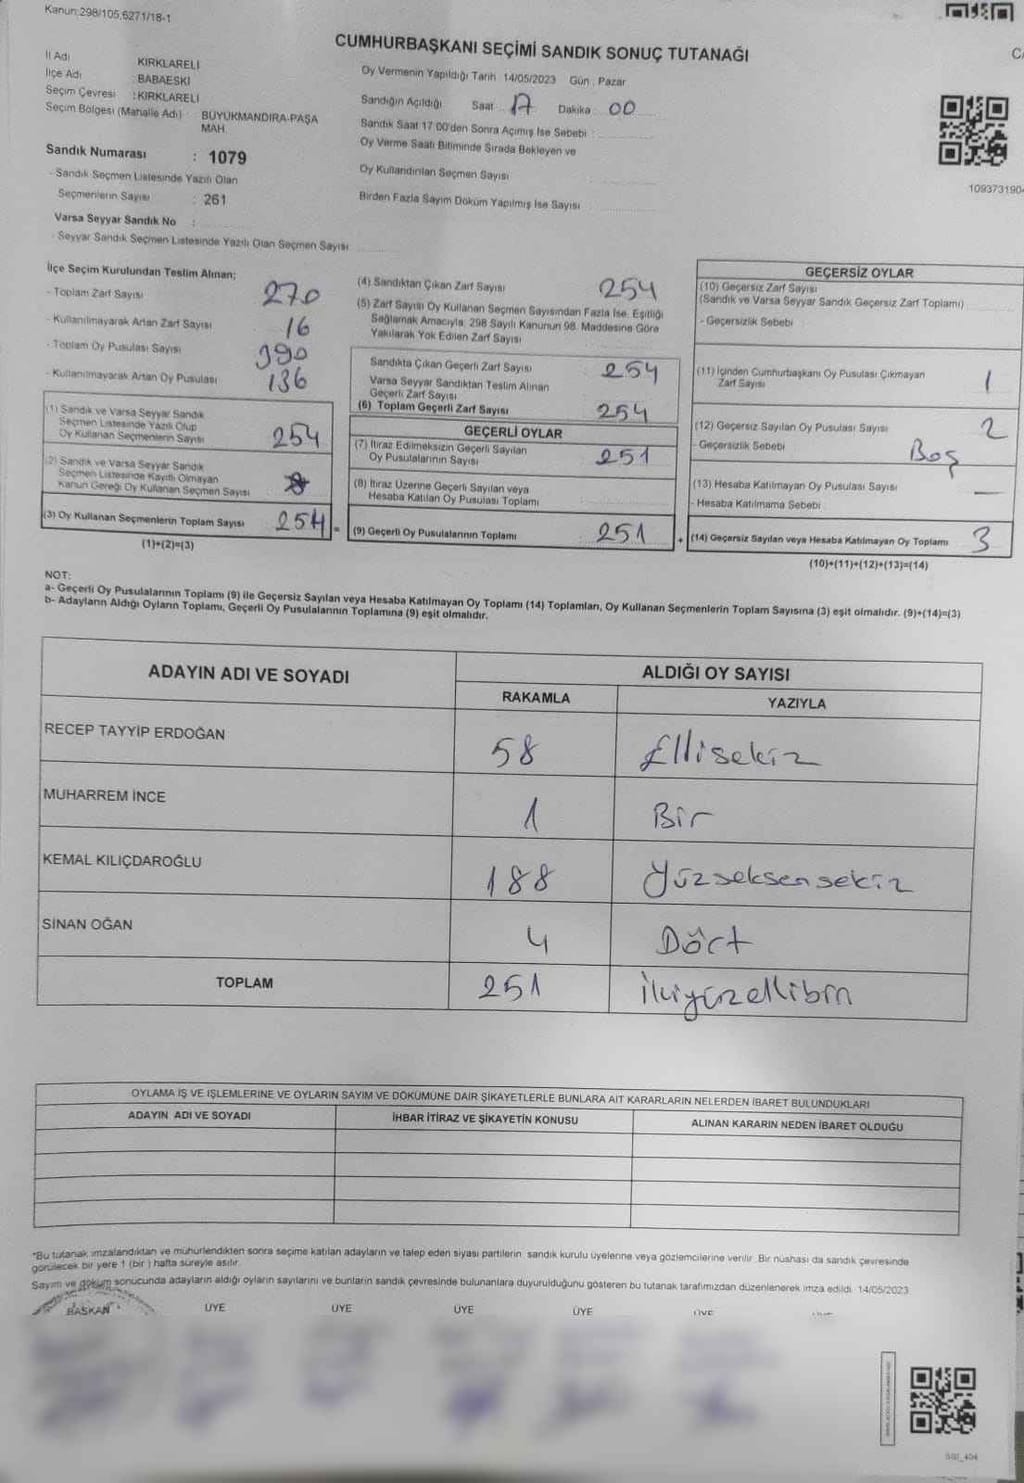 Kanun:298/105,6271/18-1
CUMHURBAŞKANI SEÇİMİ SANDIK SONUÇ TUTANAĞI
İl Adı : KIRKLARELİ
İlçe Adı : BABAESKİ
Seçim Çevresi : KIRKLARELİ
Seçim Bölgesi (Mahalle Adı) : BÜYÜKMANDIRA-PAŞA MAH.
Sandık Numarası : 1079
- Sandık Seçmen Listesinde Yazılı Olan
Seçmenlerin Sayısı : 261
Varsa Seyyar Sandık No :
- Seyyar Sandık Seçmen Listesinde Yazılı Olan Seçmen Sayısı
Oy Vermenin Yapıldığı Tarih 14/05/2023 Gün : Pazar
Sandığın Açıldığı Saat : 17 Dakika : 00
Sandık Saat 17:00'den Sonra Açımış İse Sebebi :
Oy Verme Saati Bitiminde Sırada Bekleyen ve
Oy Kullandırılan Seçmen Sayısı
Birden Fazla Sayım Döküm Yapılmış İse Sayısı
109373190
İlçe Seçim Kurulundan Teslim Alınan;
- Toplam Zarf Sayısı 270
- Kullanılmayarak Artan Zarf Sayısı 16
- Toplam Oy Pusulası Sayısı 390
- Kullanılmayarak Artan Oy Pusulası 136
(1) Sandık ve Varsa Seyyar Sandık
Seçmen Listesinde Yazılı Olup
Oy Kullanan Seçmenlerin Sayısı 254
(2) Sandık ve Varsa Seyyar Sandık
Seçmen Listesinde Kayıtlı Olmayan
Kanun Gereği Oy Kullanan Seçmen Sayısı
(3) Oy Kullanan Seçmenlerin Toplam Sayısı 254 =
(1)+(2)=(3)
(4) Sandıktan Çıkan Zarf Sayısı 254
(5) Zarf Sayısı Oy Kullanan Seçmen Sayısından Fazla İse, Eşitliği
Sağlamak Amacıyla, 298 Sayılı Kanunun 98. Maddesine Göre
Yakılarak Yok Edilen Zarf Sayısı
Sandıkta Çıkan Geçerli Zarf Sayısı 254
Varsa Seyyar Sandıktan Teslim Alınan
Geçerli Zarf Sayısı
(6) Toplam Geçerli Zarf Sayısı 254
GEÇERLİ OYLAR
(7) İtiraz Edilmeksizin Geçerli Sayılan
Oy Pusulalarının Sayısı 251
(8) İtiraz Üzerine Geçerli Sayılan veya
Hesaba Katılan Oy Pusulası Toplamı
(9) Geçerli Oy Pusulalarının Toplamı 251 +
GEÇERSİZ OYLAR
(10) Geçersiz Zarf Sayısı
(Sandık ve Varsa Seyyar Sandık Geçersiz Zarf Toplamı)
- Geçersizlik Sebebi
(11) İçinden Cumhurbaşkanı Oy Pusulası Çıkmayan
Zarf Sayısı 1
(12) Geçersiz Sayılan Oy Pusulası Sayısı 2
- Geçersizlik Sebebi Boş
(13) Hesaba Katılmayan Oy Pusulası Sayısı —
- Hesaba Katılmama Sebebi
(14) Geçersiz Sayılan veya Hesaba Katılmayan Oy Toplamı 3
(10)+(11)+(12)+(13)=(14)
NOT:
a- Geçerli Oy Pusulalarının Toplamı (9) ile Geçersiz Sayılan veya Hesaba Katılmayan Oy Toplamı (14) Toplamları, Oy Kullanan Seçmenlerin Toplam Sayısına (3) eşit olmalıdır. (9)+(14)=(3)
b- Adayların Aldığı Oyların Toplamı, Geçerli Oy Pusulalarının Toplamına (9) eşit olmalıdır.
ADAYIN ADI VE SOYADI
ALDIĞI OY SAYISI
RAKAMLA YAZIYLA
RECEP TAYYİP ERDOĞAN 58 Ellisekiz
MUHARREM İNCE 1 Bir
KEMAL KILIÇDAROĞLU 188 Yüzseksensekiz
SİNAN OĞAN 4 Dört
TOPLAM 251 İkiyüzellibir
OYLAMA İŞ VE İŞLEMLERİNE VE OYLARIN SAYIM VE DÖKÜMÜNE DAİR ŞİKAYETLERLE BUNLARA AİT KARARLARIN NELERDEN İBARET BULUNDUKLARI
ADAYIN ADI VE SOYADI İHBAR İTİRAZ VE ŞİKAYETİN KONUSU ALINAN KARARIN NEDEN İBARET OLDUĞU
*Bu tutanak imzalandıktan ve mühürlendikten sonra seçime katılan adayların ve talep eden siyasi partilerin sandık kurulu üyelerine veya gözlemcilerine verilir. Bir nüshası da sandık çevresinde
görülecek bir yere 1 (bir) hafta süreyle asılır.
Sayım ve döküm sonucunda adayların aldığı oyların sayılarını ve bunların sandık çevresinde bulunanlara duyurulduğunu gösteren bu tutanak tarafımızdan düzenlenerek imza edildi. 14/05/2023
BAŞKAN ÜYE ÜYE ÜYE ÜYE ÜYE